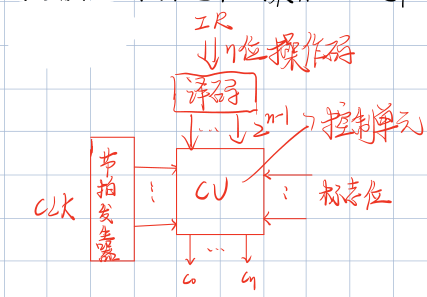 IR
n位操作码
译码
... 2^n-1
控制单元
节拍发生器
CLK
CU
标志位
...
C0 Cn